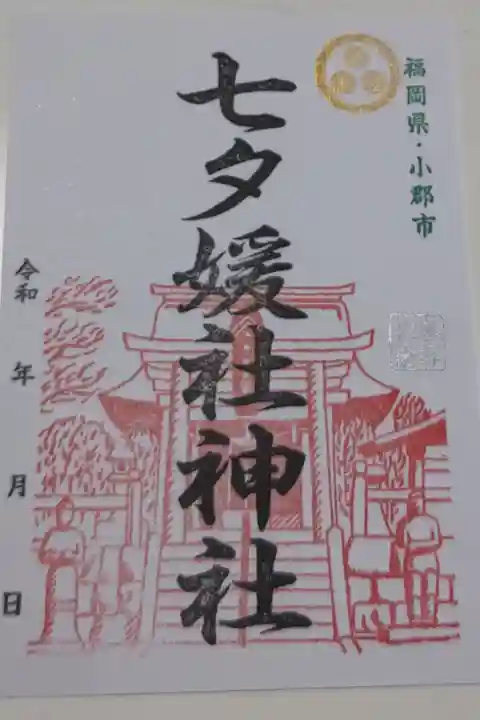 福岡県・小郡市
七夕媛社神社
令和 年 月 日